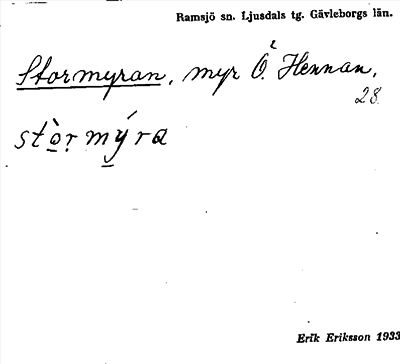 Ramsjö sn. Ljusdals tg. Gävleborgs län.
Stormyran, myr Ö. Hennan,
28.
stò̠ṛ mý̠ra
Erik Eriksson 1933